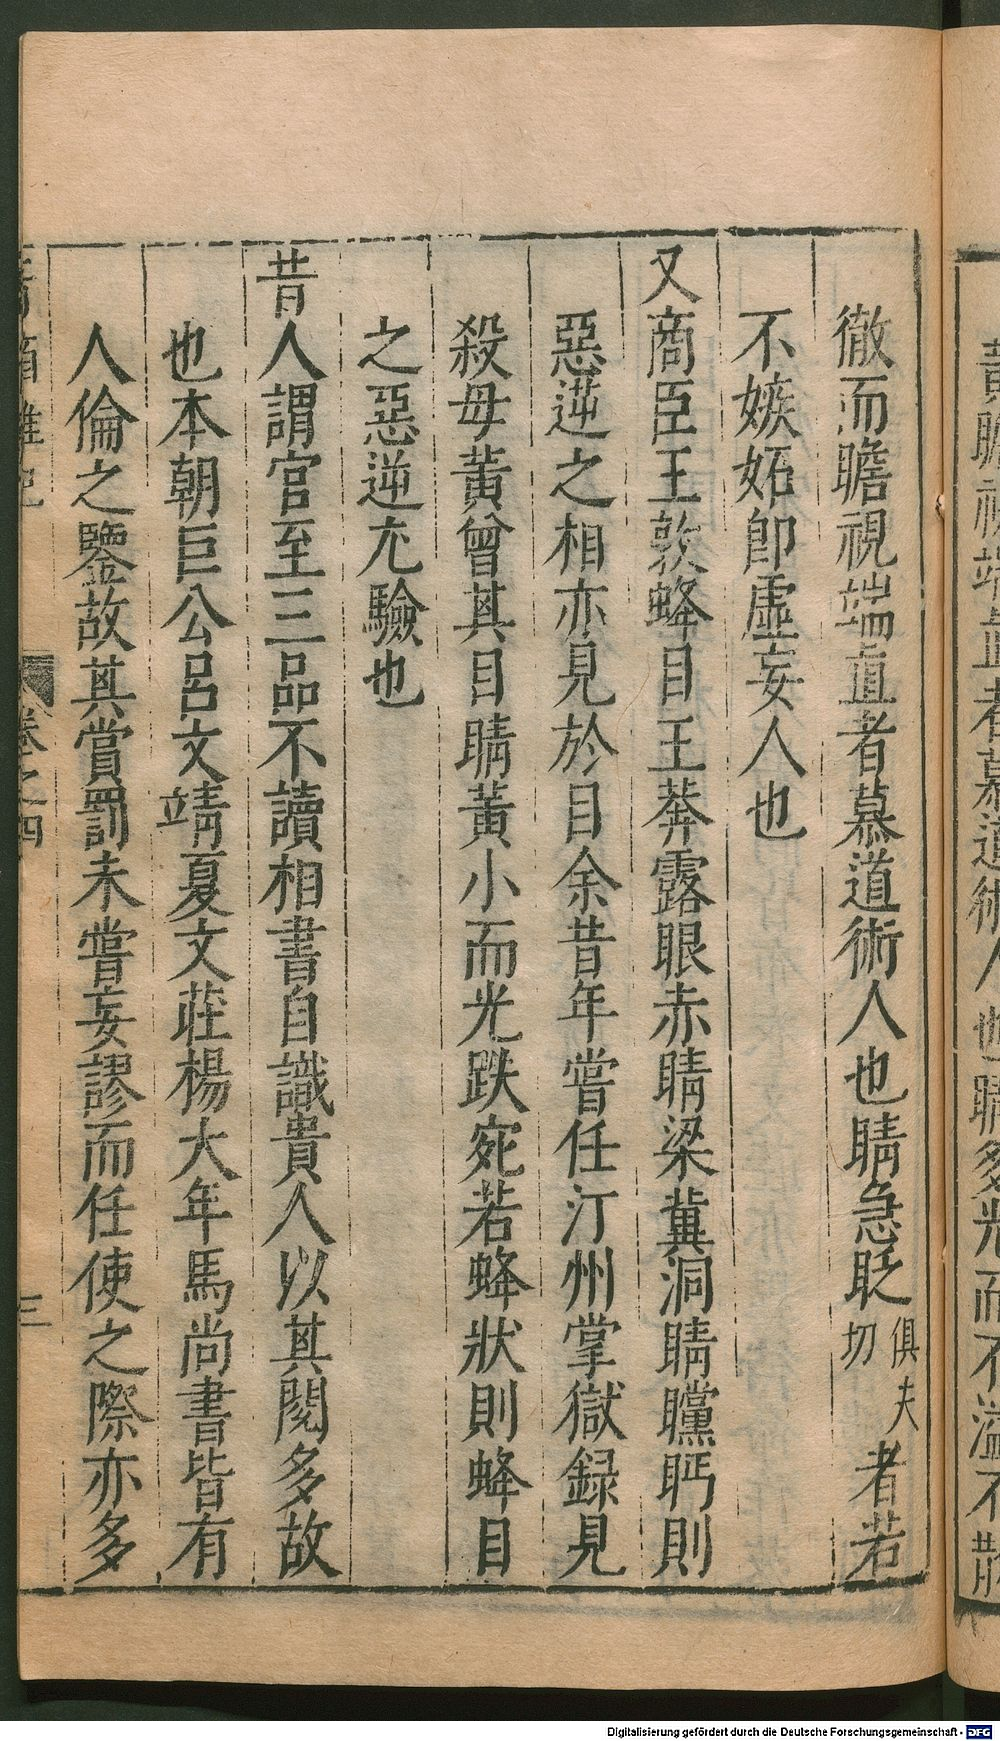 徹而瞻視端直者慕道術人也睛急眨俱夫切者若
不嫉妬即虛妄人也
又商臣王敦蜂目王莽露眼赤睛梁冀洞睛矘眄則
惡逆之相亦見於目余昔年嘗任汀州掌獄録見
殺母黃曾其目睛黃小而光跌宛若蜂狀則蜂目
之惡逆尤驗也
昔人謂官至三品不讀相書自識貴人以其閱多故
也本朝巨公呂文靖夏文莊楊大年馬尚書皆有
人倫之鑒故其賞罰未嘗妄謬而任使之際亦多
青箱雜記 卷之四 三
黃瞻視端直者慕道術人也睛多光而不溢不散
Digitalisierung gefördert durch die Deutsche Forschungsgemeinschaft - DFG